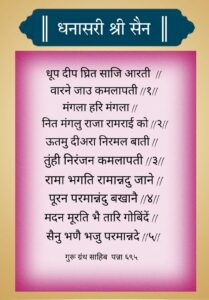 ॥ धनासरी श्री सैन ॥
धूप दीप घ्रित साजि आरती //
वारने जाउ कमलापती //१//
मंगला हरि मंगला //
नित मंगलु राजा रामराई को //२//
ऊतमु दीअरा निरमल बाती //
तुंही निरंजन कमलापती //३//
रामा भगति रामान्नदु जाने //
पूरन परमान्नदु बखानै //४//
मदन मूरति भै तारि गोबिंदें //
सैनु भणै भजु परमान्नदे //५//
गुरू ग्रंथ साहिब पन्ना ६९५